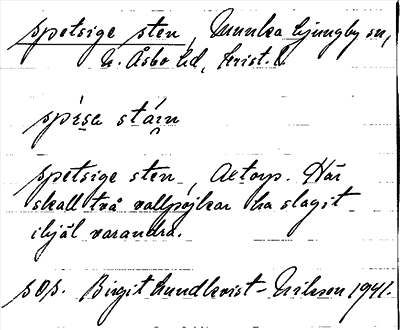 spetsige sten, Munka Ljungby sn,
N. Åsbo hd, Krist. l.
spesa stain
spetsige sten, Aetorp. Här
skall två vallpojkar ha slagit
ihjäl varandra.
sos. Birgit Lundkvist-Nilsson 1941.